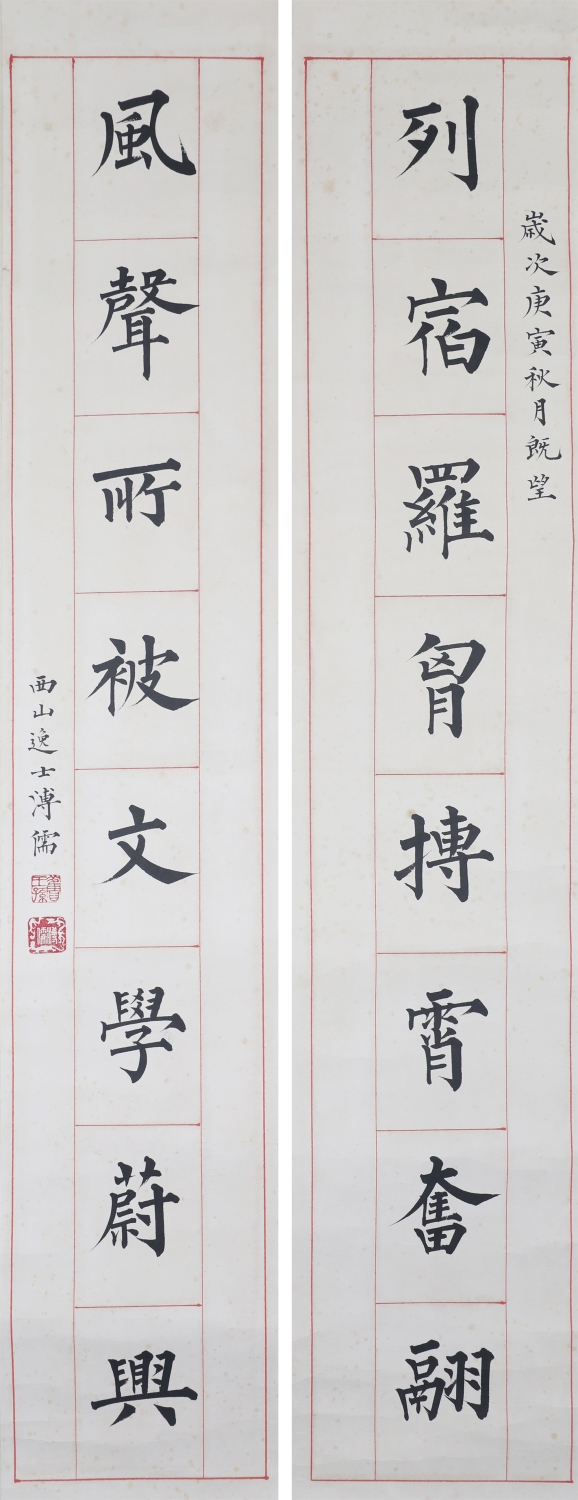 歲次庚寅秋月既望
列宿羅胷摶霄奮翮
風聲所被文學蔚興
西山逸士溥儒
舊王孫
溥儒